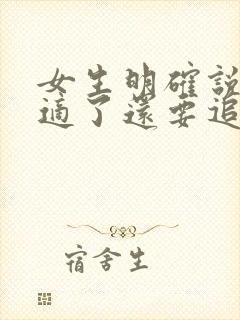 女生明確說
適了還要追
宿舍生